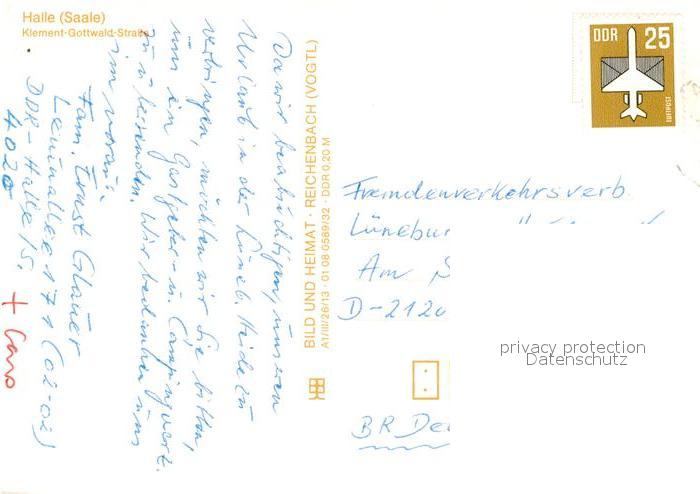 Halle (Saale)
Klement-Gottwald-Straße
Da wir beabsichtigen, unseren
Urlaub in der Lüneb. Heide zu
verbringen, möchten wir Sie bitten,
uns ein Gastgeber- u. Campingverz.
zu übersenden. Wir bedanken uns
im voraus.
Fam. Ernst Glauer
Leninallee 171 (02-02)
DDR-Halle/S.
4020
+ Caro
BILD UND HEIMAT · REICHENBACH (VOGTL)
A1/III/26/13 · 01 08 0589/32 · DDR 0,20 M
DDR 25
LUFTPOST
Fremdenverkehrsverb.
Lünebur
Am
D-2120
BR De
privacy protection
Datenschutz